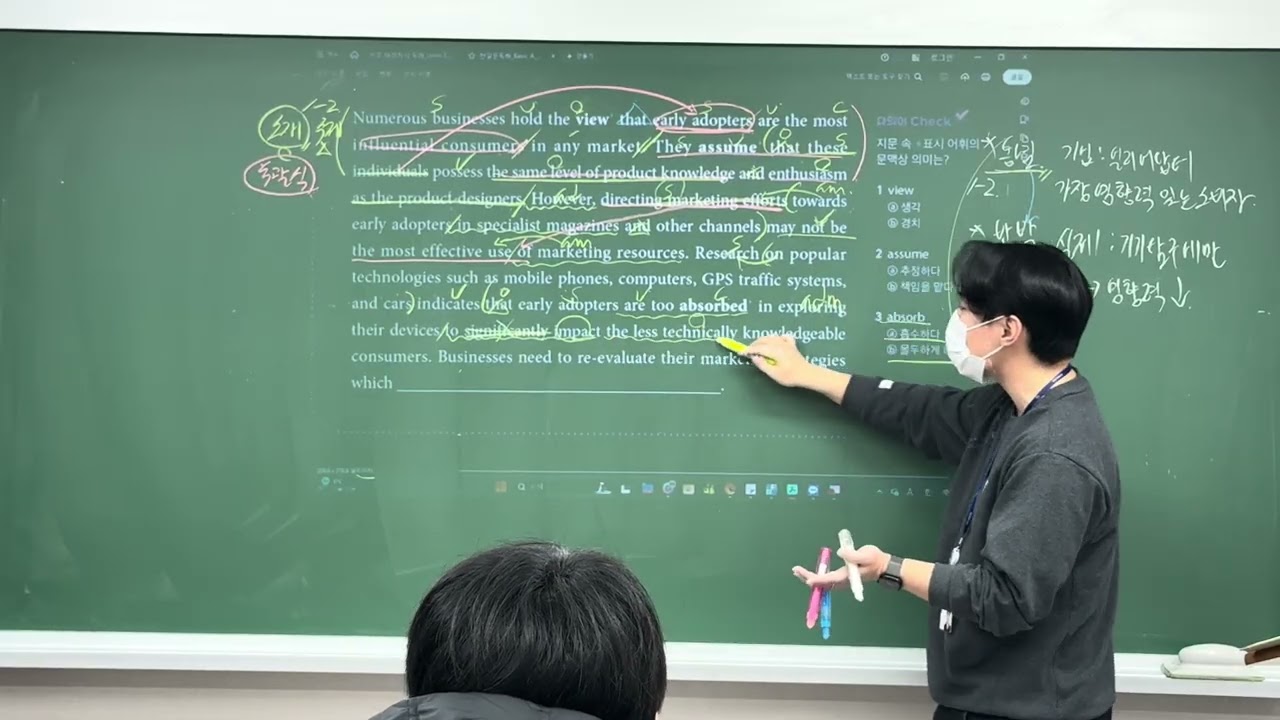 로그인
Numerous businesses hold the view that early adopters are the most
influential consumers in any market. They assume that these
individuals possess the same level of product knowledge and enthusiasm
as the product designers. However, directing marketing efforts towards
early adopters in specialist magazines and other channels may not be
the most effective use of marketing resources. Research on popular
technologies such as mobile phones, computers, GPS traffic systems,
and cars indicates that early adopters are too absorbed in exploring
their devices to significantly impact the less technically knowledgeable
consumers. Businesses need to re-evaluate their
which
소개
1-2
주관식
S V O S V C
O S
O
am
S
am
S
O S V C adm
O
Check
지문 속 표시 어휘의
문맥상 의미는?
1 view
ⓐ 생각
ⓑ 경치
2 assume
ⓐ 추정하다
ⓑ 책임을 맡다
3 absorb
ⓐ 흡수하다
ⓑ 몰두하게
통념
1-2.
기업 : 얼리어답터
가장 영향력 있는 소비자
반박
실제 : 기기탐구에만
→ 영향력 ↓